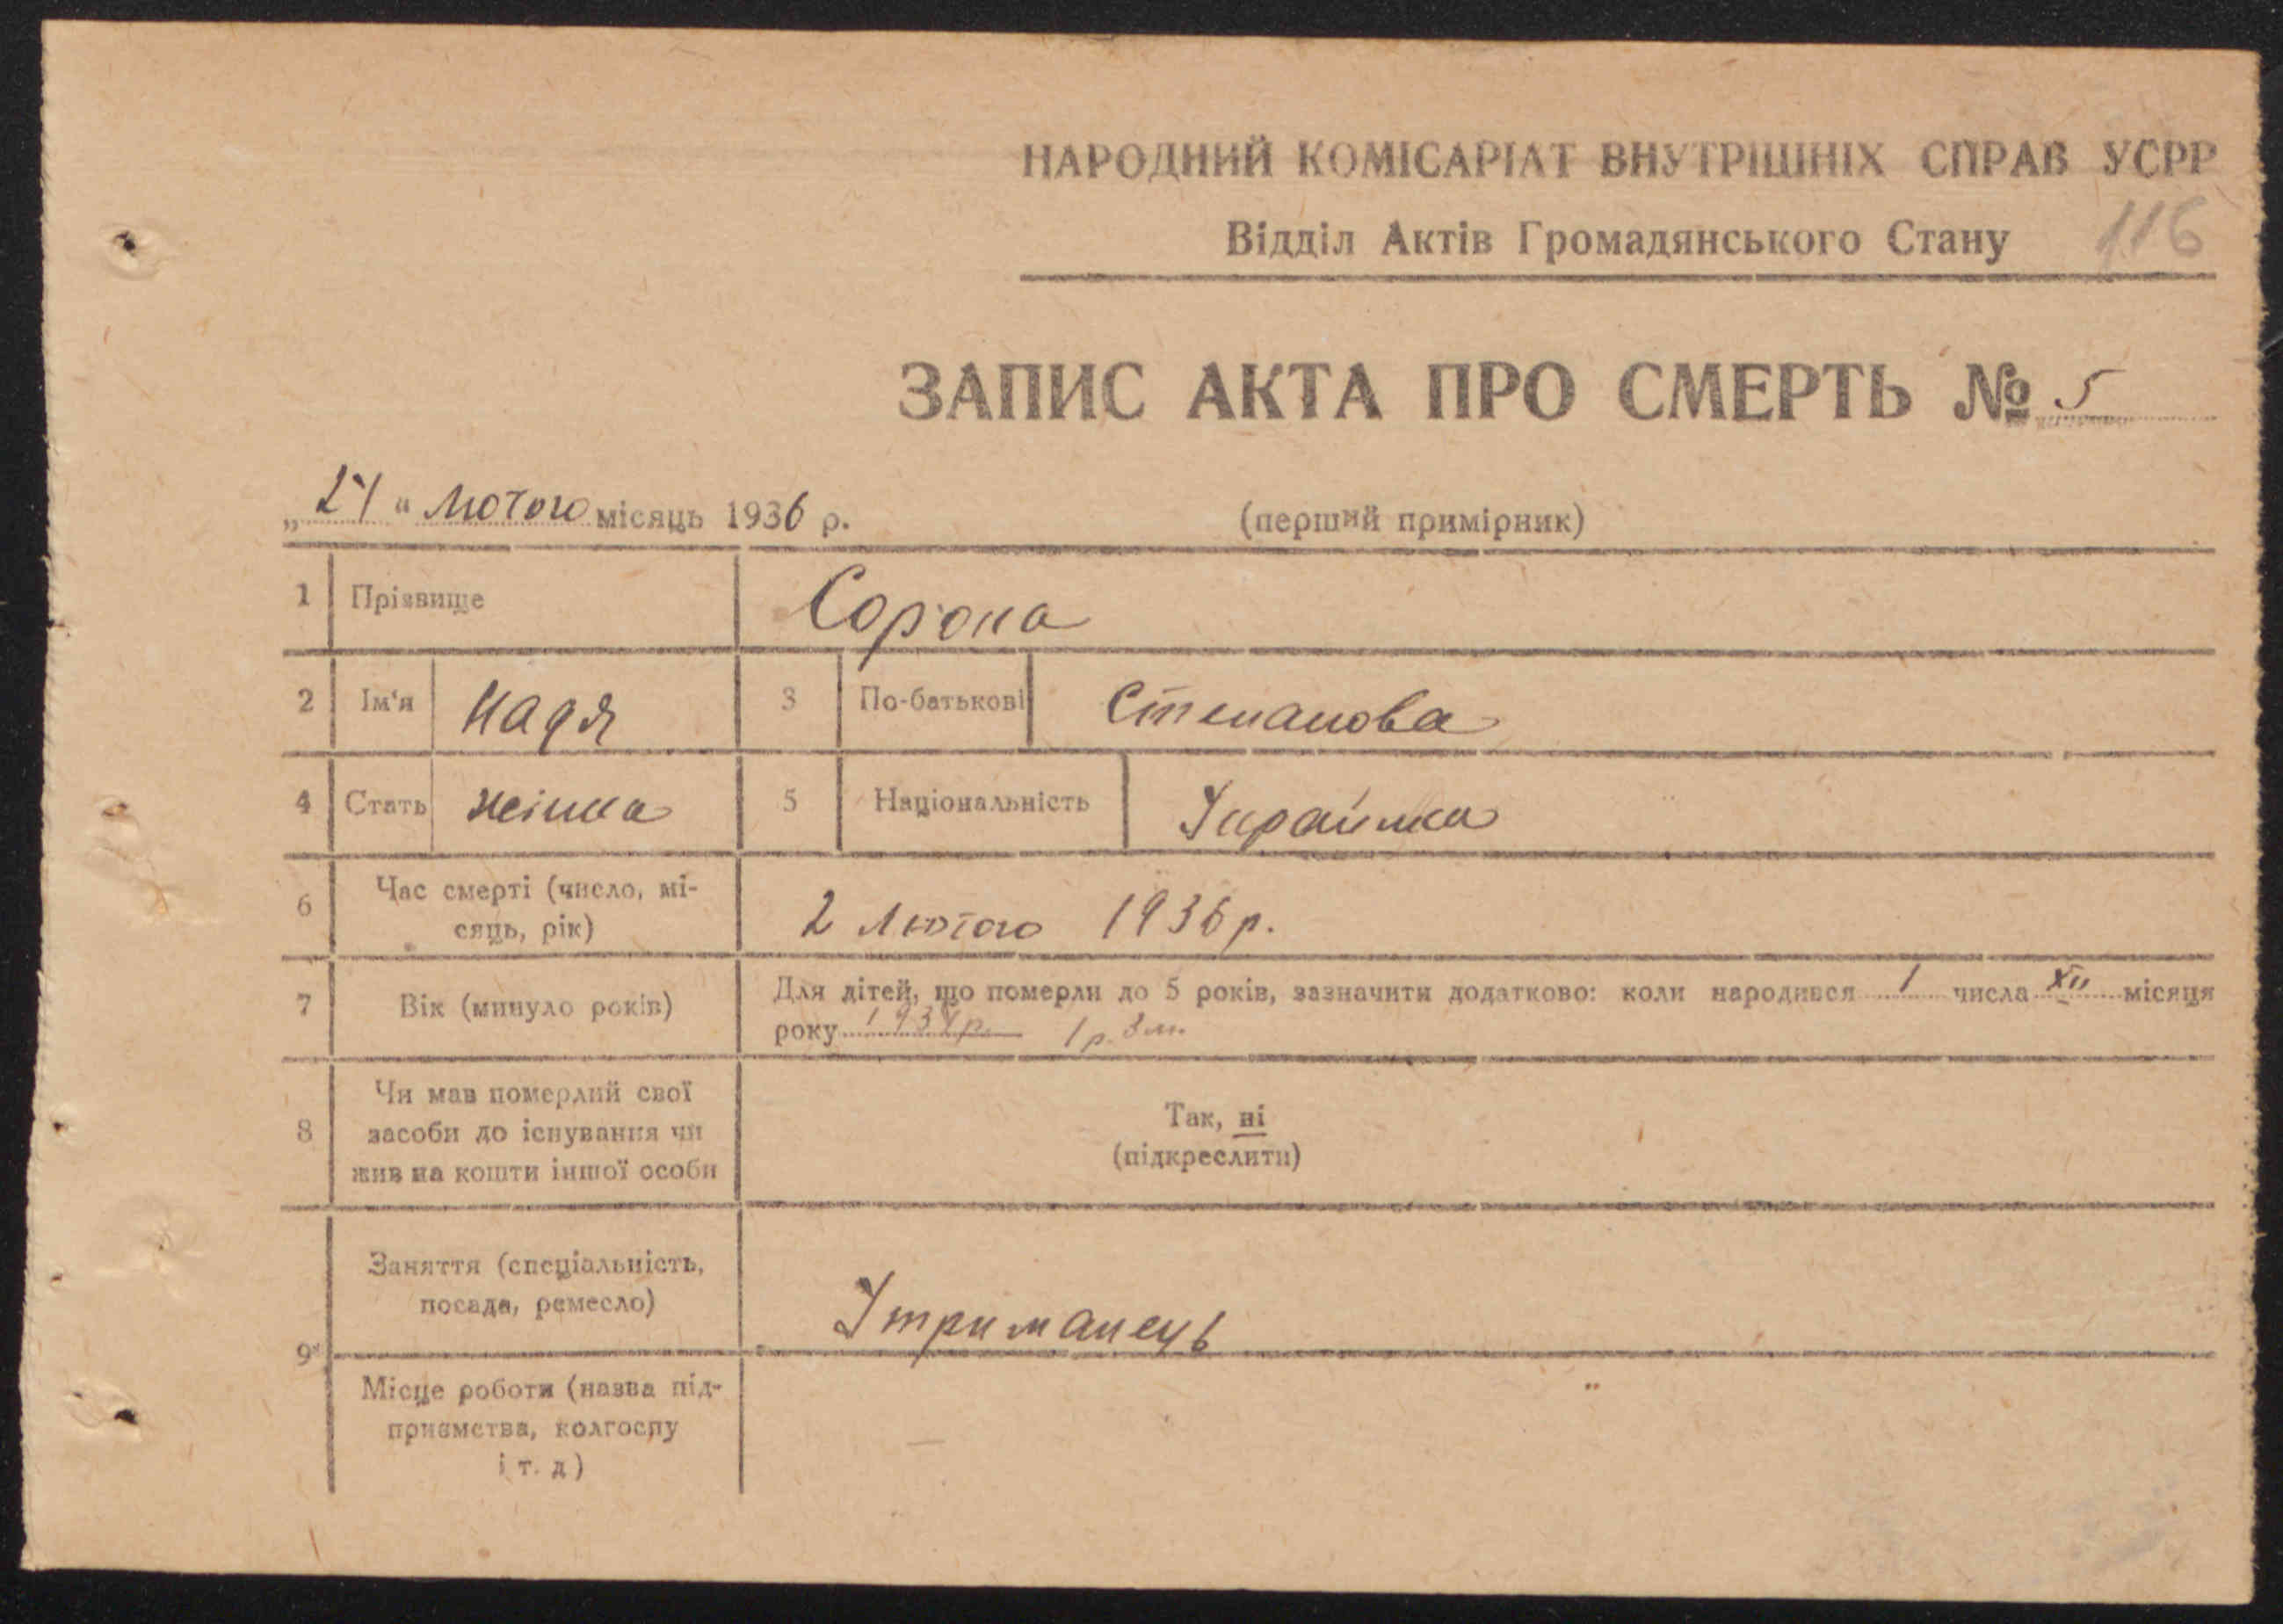 НАРОДНИЙ КОМІСАРІАТ ВНУТРІШНІХ СПРАВ УСРР
Відділ Актів Громадянського Стану 116
ЗАПИС АКТА ПРО СМЕРТЬ № 5
„24“ Лютого місяць 1936 р. (перший примірник)
1 Прізвище Сорока
2 Ім'я Надя 3 По-батькові Степанова
4 Стать жінка 5 Національність Українка
6 Час смерті (число, мі-
сяць, рік) 2 Лютого 1936 р.
7 Вік (минуло років) Для дітей, що померли до 5 років, зазначити додатково: коли народився 1 числа XII місяця
року 1934 р. 1 р. 3 м.
8 Чи мав померлий свої
засоби до існування чи
жив на кошти іншої особи
Так, ні
(підкреслити)
9 Заняття (спеціальність,
посада, ремесло) Утриманець
Місце роботи (назва під-
приємства, колгоспу
і т. д)